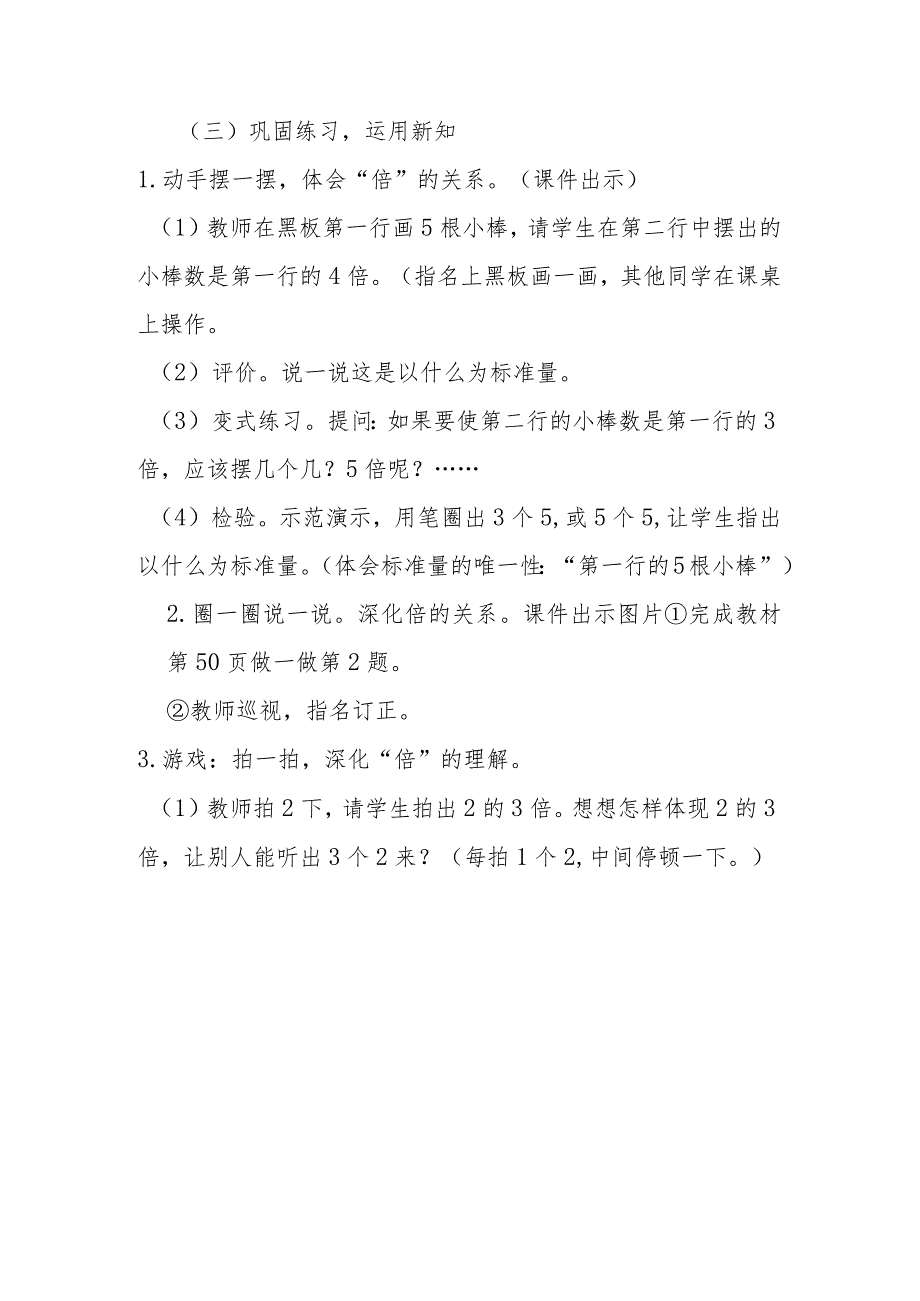 （三）巩固练习，运用新知
1.动手摆一摆，体会“倍”的关系。（课件出示）
（1）教师在黑板第一行画5根小棒，请学生在第二行中摆出的
小棒数是第一行的4倍。（指名上黑板画一画，其他同学在课桌
上操作。
（2）评价。说一说这是以什么为标准量。
（3）变式练习。提问：如果要使第二行的小棒数是第一行的3
倍，应该摆几个几？5倍呢？……
（4）检验。示范演示，用笔圈出3个5,或5个5,让学生指出
以什么为标准量。（体会标准量的唯一性：“第一行的5根小棒”）
2.圈一圈说一说。深化倍的关系。课件出示图片①完成教材
第50页做一做第2题。
②教师巡视，指名订正。
3.游戏：拍一拍，深化“倍”的理解。
（1）教师拍2下，请学生拍出2的3倍。想想怎样体现2的3
倍，让别人能听出3个2来？（每拍1个2,中间停顿一下。）